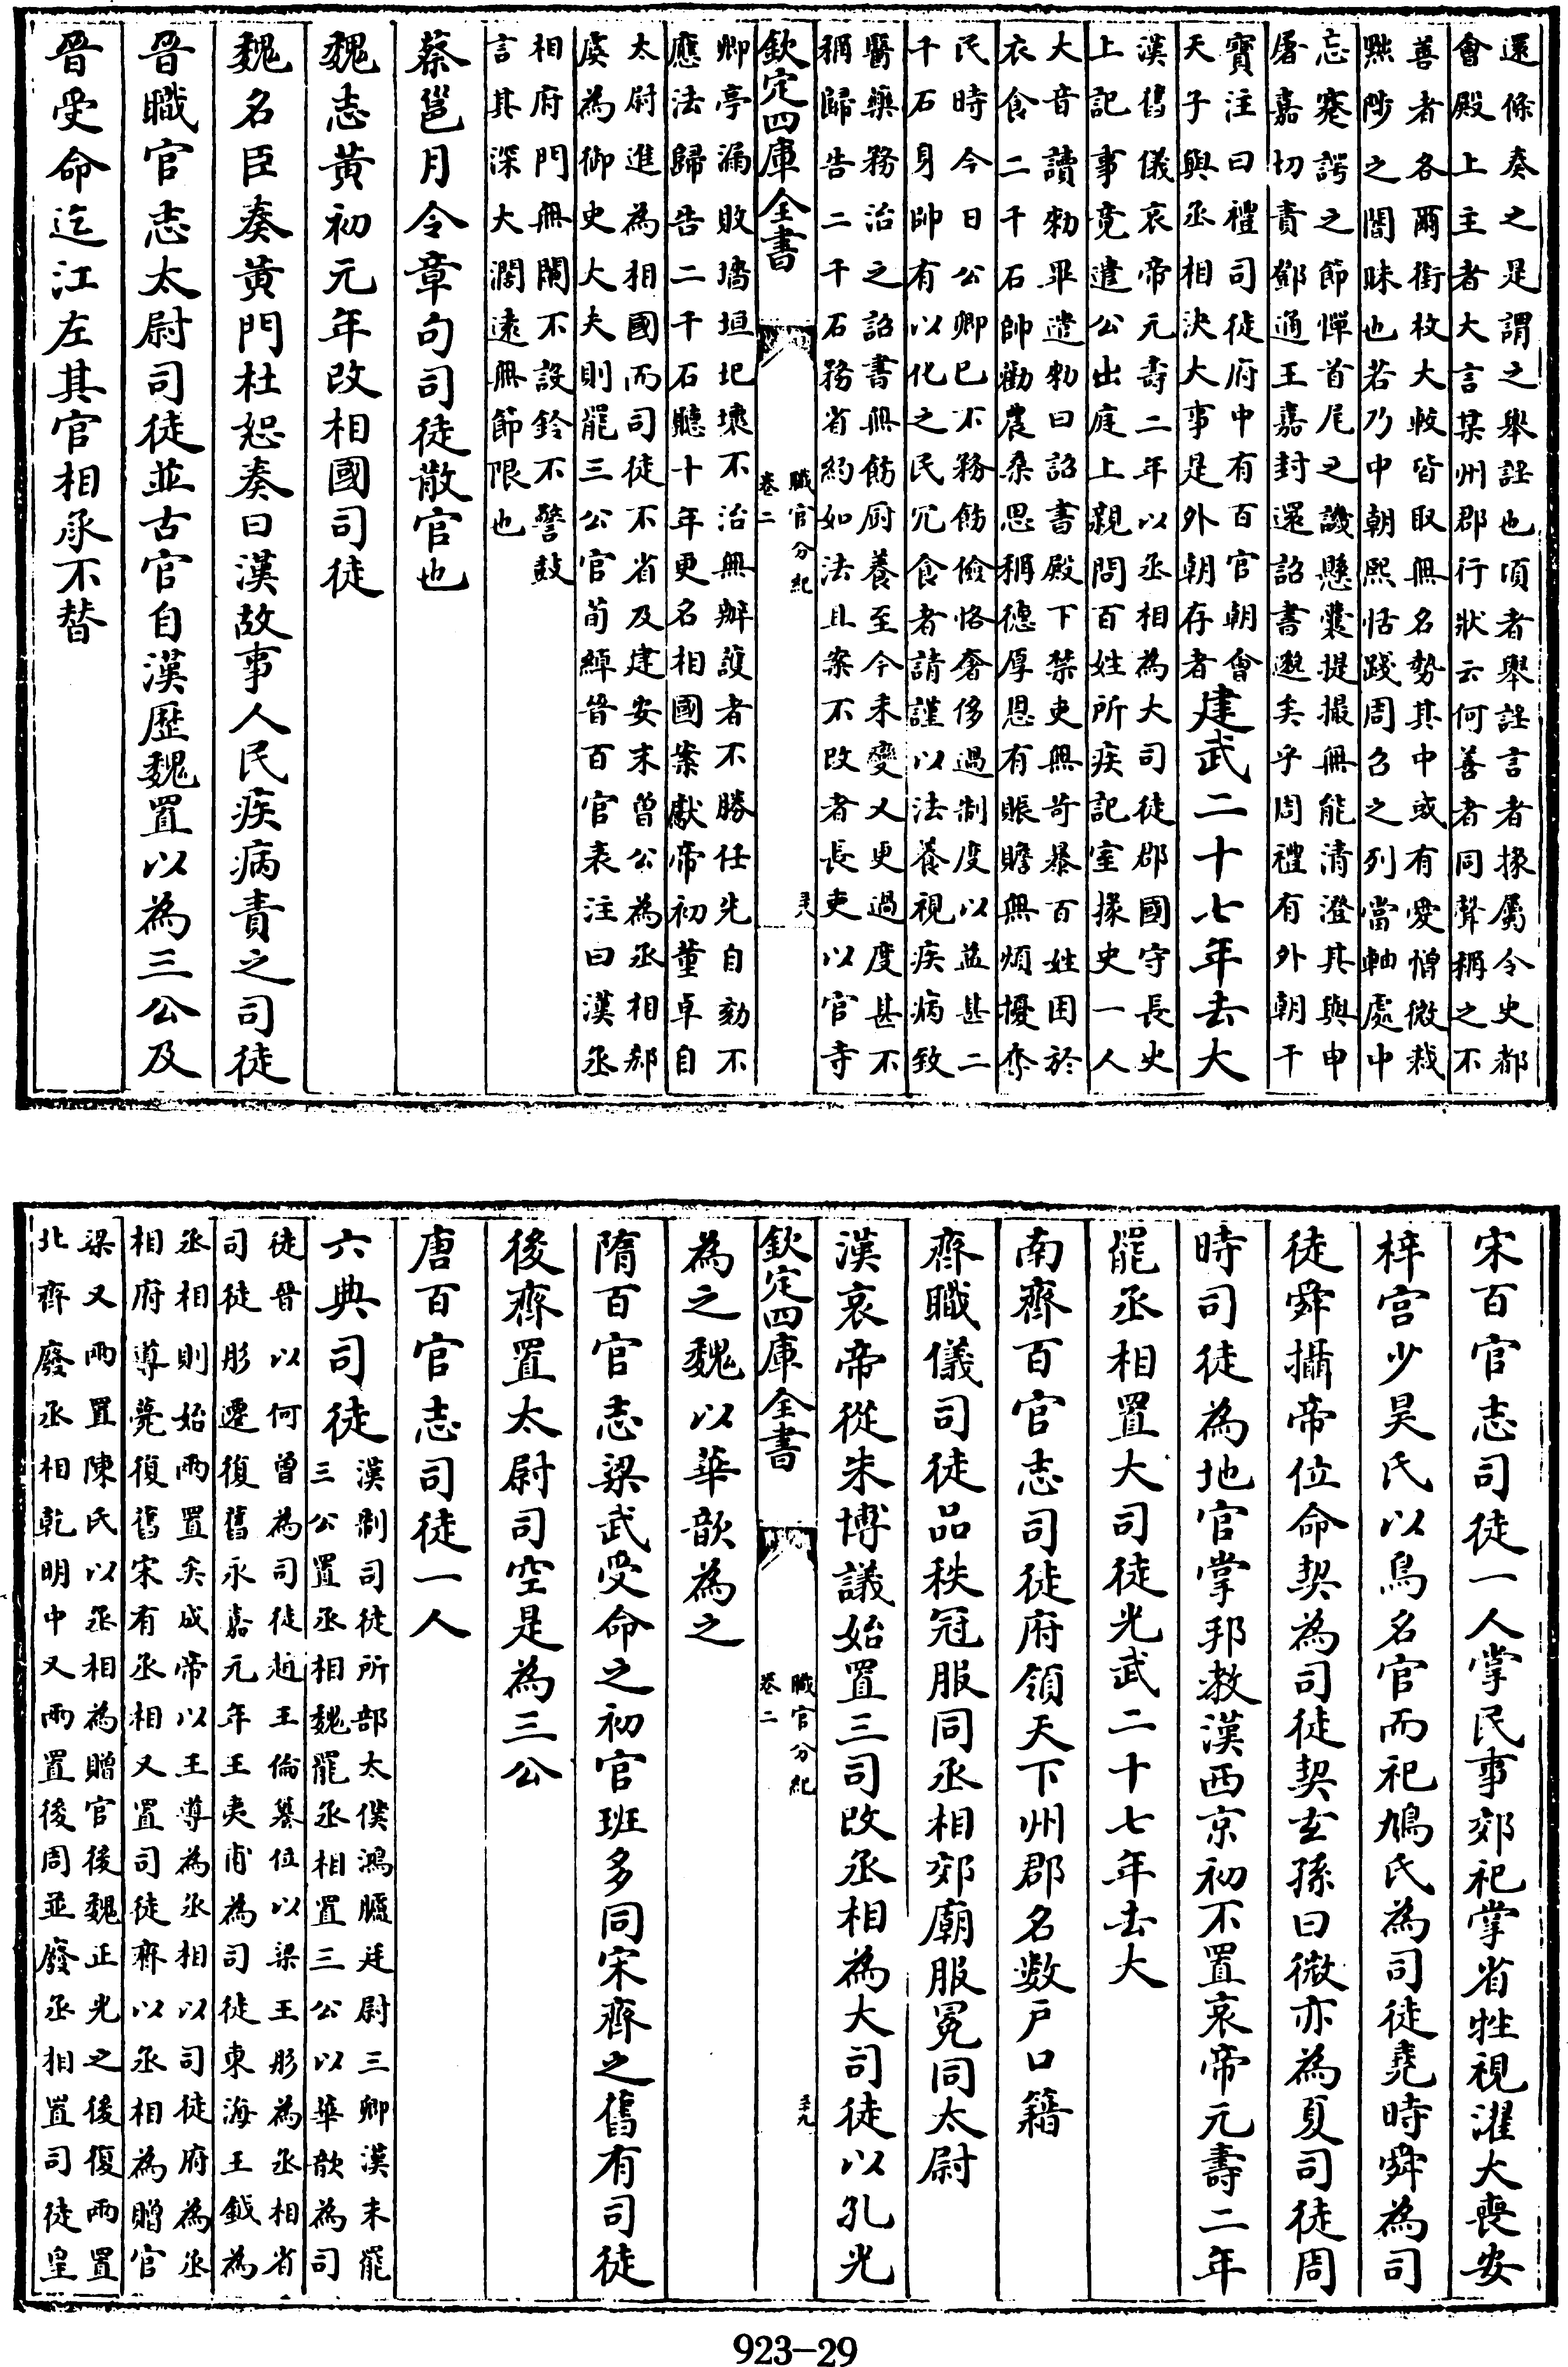 還條奏之是謂之舉謡也頃者舉謡言者掾屬令史都
會殿上主者大言某州郡行狀云何善者同聲稱之不
善者各爾銜枚大較皆取無名勢其中或有愛憎微裁
黜陟之闇昧也若乃中朝熙恬踐周召之列當軸處中
忘謇諤之節憚首尾之譏懸囊提撮無能清澄其與申
屠嘉切責鄧通王嘉封還詔書邈矣乎周禮有外朝干
寶注曰禮司徒府中有百官朝會
天子與丞相決大事是外朝存者
建武二十七年去大
漢舊儀哀帝元壽二年以丞相為大司徒郡國守長史
上記事竟遣公出庭上親問百姓所疾記室掾史一人
大音讀勑畢遣勑曰詔書殿下禁吏無苛暴百姓困於
衣食二千石帥勸農桑思稱德厚恩有賬贍無煩擾奪
民時今日公卿已不務飭儉恪奢侈過制度以益甚二
千石身帥有以化之民冗食者請謹以法養視疾病致
醫藥務治之詔書無飭厨養至今未變又更過度甚不
稱歸告二千石務省約如法且案不改者長吏以官寺
欽定四庫全書
職官分紀
卷二
卿亭漏敗墻垣圯壞不治無辦護者不勝任先自劾不
應法歸告二千石聽十年更名相國案獻帝初董卓自
太尉進為相國而司徒不省及建安末曾公為丞相郝
虞為御史大夫則罷三公官荀綽晉百官表注曰漢丞
相府門無闌不設鈴不警鼓
言其深大濶遠無節限也
蔡邕月令章句司徒散官也
魏志黃初元年改相國司徒
魏名臣奏黃門杜恕奏曰漢故事人民疾病責之司徒
晉職官志太尉司徒並古官自漢歷魏置以為三公及
晉受命迄江左其官相承不替
宋百官志司徒一人掌民事郊祀掌省牲視濯大喪安
梓宫少昊氏以鳥名官而祀鳩氏為司徒堯時舜為司
徒舜攝帝位命契為司徒契玄孫曰微亦為夏司徒周
時司徒為地官掌邦教漢西京初不置哀帝元壽二年
罷丞相置大司徒光武二十七年去大
南齊百官志司徒府領天下州郡名數戶口籍
齊職儀司徒品秩冠服同丞相郊廟服冕同太尉
漢哀帝從朱博議始置三司改丞相為大司徒以孔光
欽定四庫全書
職官分紀
卷二
為之魏以華歆為之
隋百官志梁武受命之初官班多同宋齊之舊有司徒
後齊置太尉司空是為三公
唐百官志司徒一人
六典司徒
漢制司徒所部太僕鴻臚廷尉三卿漢末罷
三公置丞相魏罷丞相置三公以華歆為司
徒晉以何曾為司徒趙王倫簒位以梁王肜為丞相省
司徒肜遷復舊永嘉元年王夷甫為司徒東海王鉞為
丞相則始兩置矣成帝以王導為丞相以司徒府為丞
相府導薨復舊宋有丞相又置司徒齊以丞相為贈官
梁又兩置陳氏以丞相為贈官後魏正光之後復兩置
北齊廢丞相乾明中又兩置後周並廢丞相置司徒皇
923—29